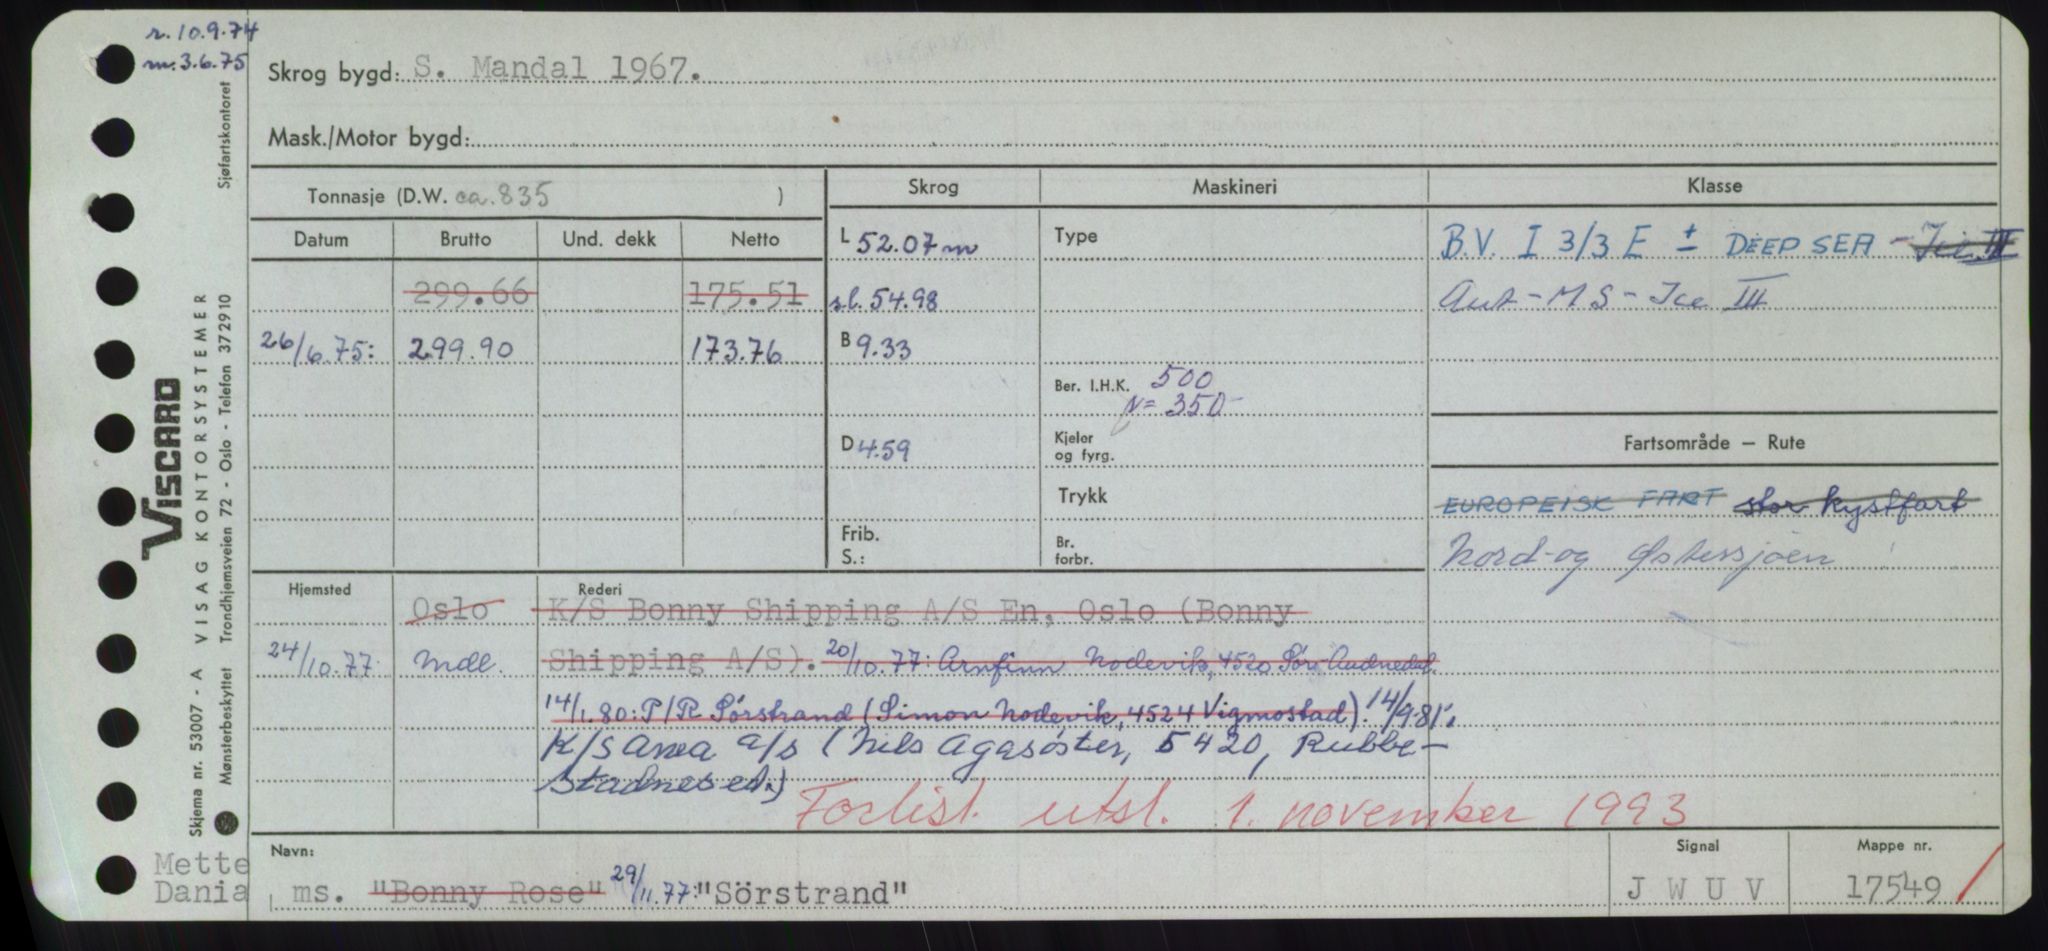 r. 10.9.74
m. 3.6.75
Sjøfartskontoret
Skrog bygd: S. Mandal 1967.
Mask./Motor bygd:
Tonnasje (D.W. ca. 835 )
Skrog
Maskineri
Klasse
Datum
Brutto
Und. dekk
Netto
L 52.07 m
Type
B.V. I 3/3 E ± DEEP SEA - Ice III
299.66
175.51
s.l. 54.98
Aut - M.S - Ice III
26/6.75:
299.90
173.76
B 9.33
Ber. I.H.K. 500
N= 350
D 4.59
Kjeler
og fyrg.
Fartsområde — Rute
Trykk
EUROPEISK FART stor kystfart
Frib.
S.:
Br.
forbr.
Nord- og Østersjøen
Hjemsted
Rederi
Oslo
K/S Bonny Shipping A/S En, Oslo (Bonny
24/10.77
Mdl.
Shipping A/S). 20/10.77: Arnfinn Nodevik, 4520 Sör-Audnedal
14/1.80: P/R Sörstrand (Simon Nodevik, 4524 Vigmostad). 14/9.81.
K/S Anea a/s (Nils Agasöster, 5420, Rubbe-
stadnesed.)
Forlist utsl. 1. november 1993
Navn:
ms. "Bonny Rose" 29/11.77: "Sörstrand"
Signal
J W U V
Mappe nr.
17549
Mette
Dania
VISCARD
VISAG KONTORSYSTEMER
Trondhjemsveien 72 - Oslo - Telefon 372910
Skjema nr. 53007 - A
Mønsterbeskyttet